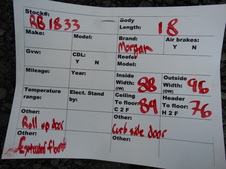 Stock#: RB1833
Body Length: 18
Make:
Model:
Brand: Morgan
Air brakes: Y N
Gvw:
CDL: Y N
Reefer Model:
Mileage:
Year:
Inside Width: (IW) 88
Outside Width: (OW) 96
Temperature range:
Elect. Stand by:
Ceiling To floor: C 2 F 84
Header To floor: H 2 F 76
Other: Roll up door
Other: Curb side door
Other:
Other: